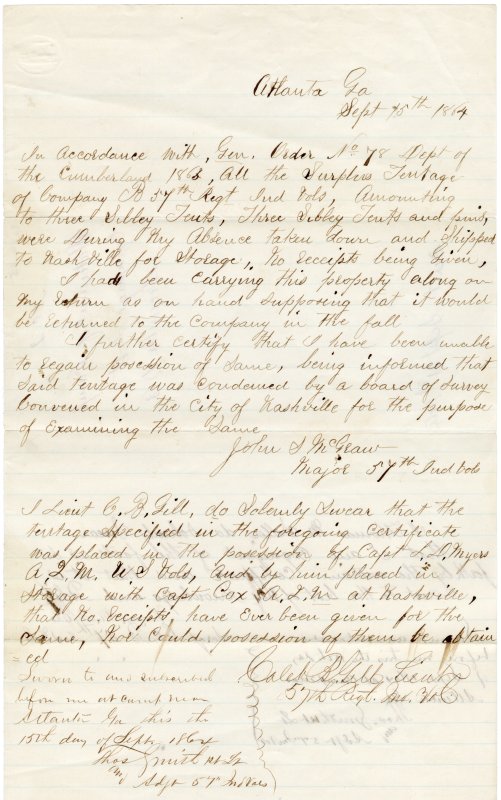 Atlanta Ga
Sept 15th 1864
In Accordance with, Gen. Order No 78 Dept of
the Cumberland 1863, All the Surplus Tentage
of Company B 57th Regt Ind Vols, Amounting
to three Sibley Tents, Three Sibley Tents and pins,
were During My Absence taken down and Shipped
to Nashville for Storage, No receipts being Given,
I had been Carrying this property along on
My return as on hand Supposing that it would
be returned to the Company in the fall
I further Certify that I have been unable
to regain posession of Same, being informed that
Said tentage was Condemed by a board of Survey
Convened in the City of Nashville for the purpose
of Examining the Same
John S McGraw
Major 57th Ind Vols
I Lieut C. B. Gill, do Solemly Swear that the
tentage Specified in the foregoing Certificate
was placed in the posession of Capt L. D. Myers
A. Q. M. U S Vols, and by him placed in
Storage with Capt Cox A. Q. M. at Nashville,
that No. receipts, have Ever been given for the
Same, Nor Could posession of them be obtain
=ed
Lieut
57th Regt. Ind. Vt
Sworn to and subscribed
before me at camp near
Atlanta Ga this the
15th day of Sept. 1864
Thos Smith 1st Lt
and Adjt 57 Ind Vols